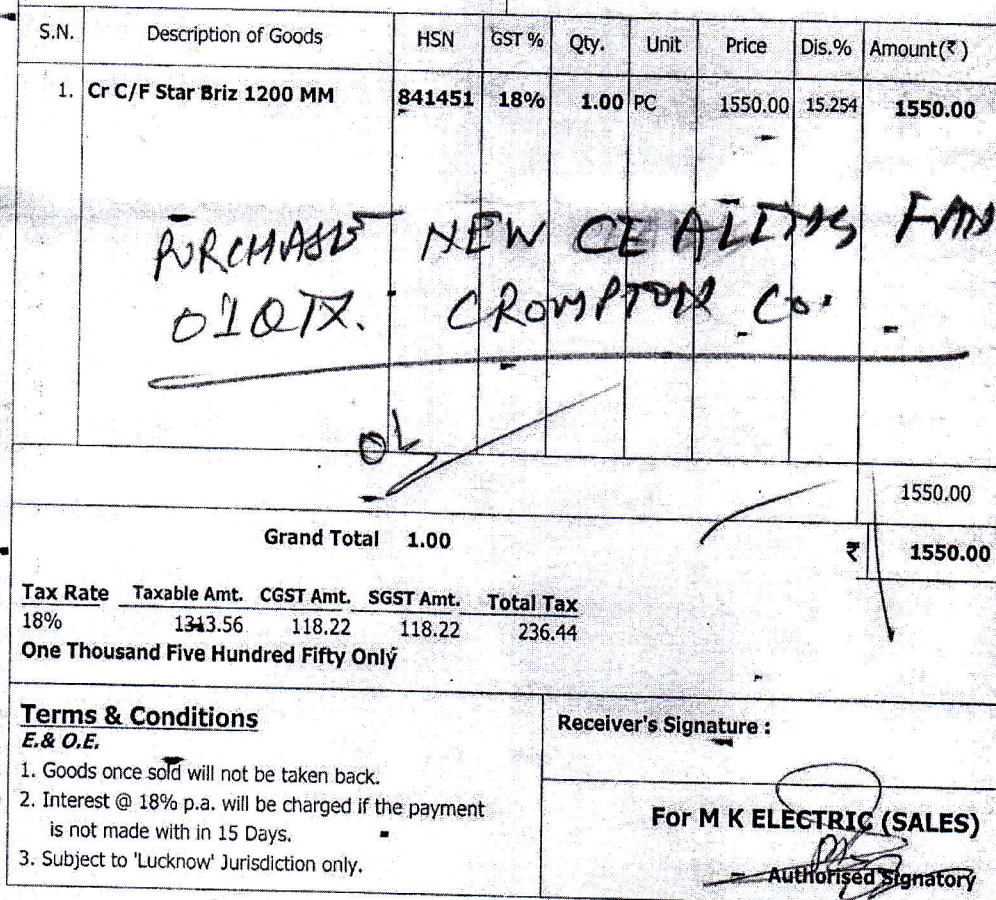 S.N. Description of Goods HSN GST % Qty. Unit Price Dis.% Amount(₹)
1. Cr C/F Star Briz 1200 MM 841451 18% 1.00 PC 1550.00 15.254 1550.00
PURCHASE NEW CEALING FAN
01 QTY. CROMPTON CO.
OK
1550.00
Grand Total 1.00 ₹ 1550.00
Tax Rate Taxable Amt. CGST Amt. SGST Amt. Total Tax
18% 1313.56 118.22 118.22 236.44
One Thousand Five Hundred Fifty Only
Terms & Conditions
E.& O.E.
1. Goods once sold will not be taken back.
2. Interest @ 18% p.a. will be charged if the payment
is not made with in 15 Days.
3. Subject to 'Lucknow' Jurisdiction only.
Receiver's Signature :
For M K ELECTRIC (SALES)
Authorised Signatory